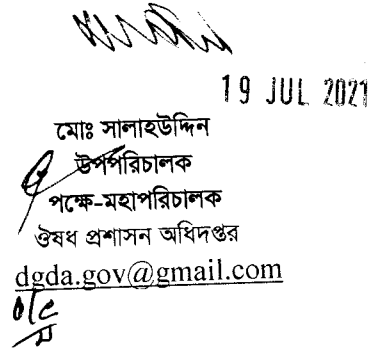 19 JUL 2021
মোঃ সালাহউদ্দিন
উপপরিচালক
পক্ষে-মহাপরিচালক
ঔষধ প্রশাসন অধিদপ্তর
dgda.gov@gmail.com